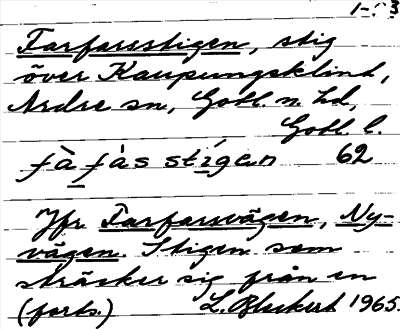 Farfarsstigen, stig
över Kaupungsklint,
Ardre sn, Gotl. n. hd,
Gotl l.
fà fàs stígen 62
Jfr Farfarsvägen, Ny-
vägen. Stigen som
sträcker sig från en
(forts.) L. Bleckert 1965.